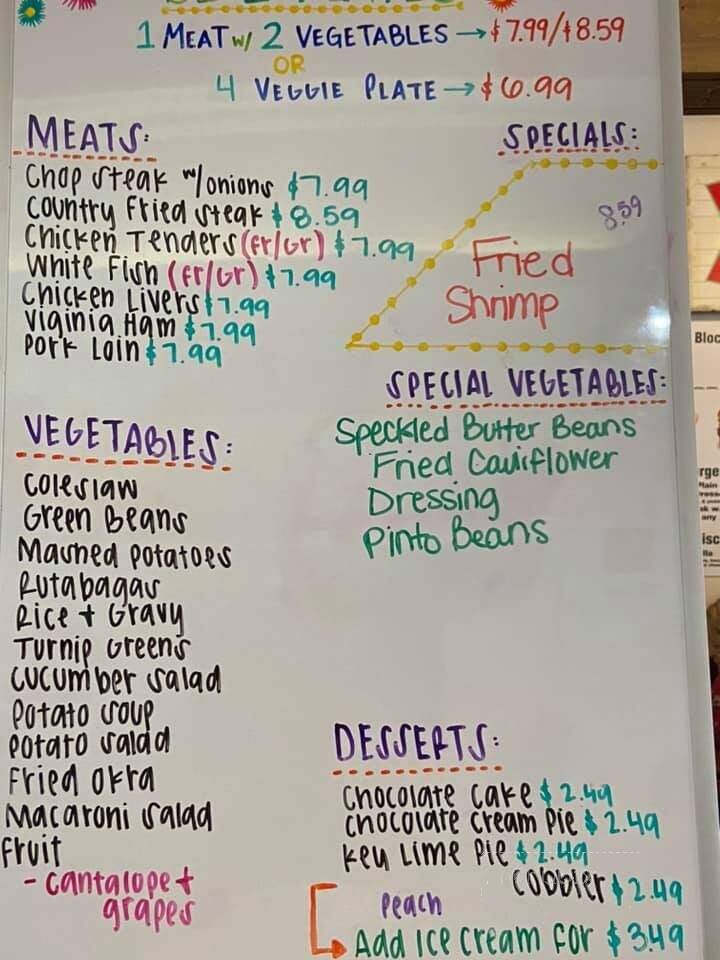 1 MEAT w/ 2 VEGETABLES → $7.99/$8.59
OR
4 VEGGIE PLATE → $6.99
MEATS:
Chop steak w/onions $7.99
Country Fried steak $8.59
Chicken Tenders (Fr/Gr) $7.99
White Fish (Fr/Gr) $7.99
Chicken Livers $7.99
Viginia Ham $7.99
Pork Loin $7.99
SPECIALS:
8.59
Fried
Shrimp
SPECIAL VEGETABLES:
Speckled Butter Beans
Fried Cauliflower
Dressing
Pinto Beans
VEGETABLES:
Coleslaw
Green Beans
Mashed potatoes
Rutabagas
Rice + Gravy
Turnip Greens
Cucumber salad
Potato soup
Potato salad
Fried okra
Macaroni salad
Fruit
- cantalope +
grapes
DESSERTS:
Chocolate cake $2.49
chocolate cream pie $2.49
key Lime Pie $2.49
Cobbler $2.49
Peach
Add Ice cream for $3.49
Bloc